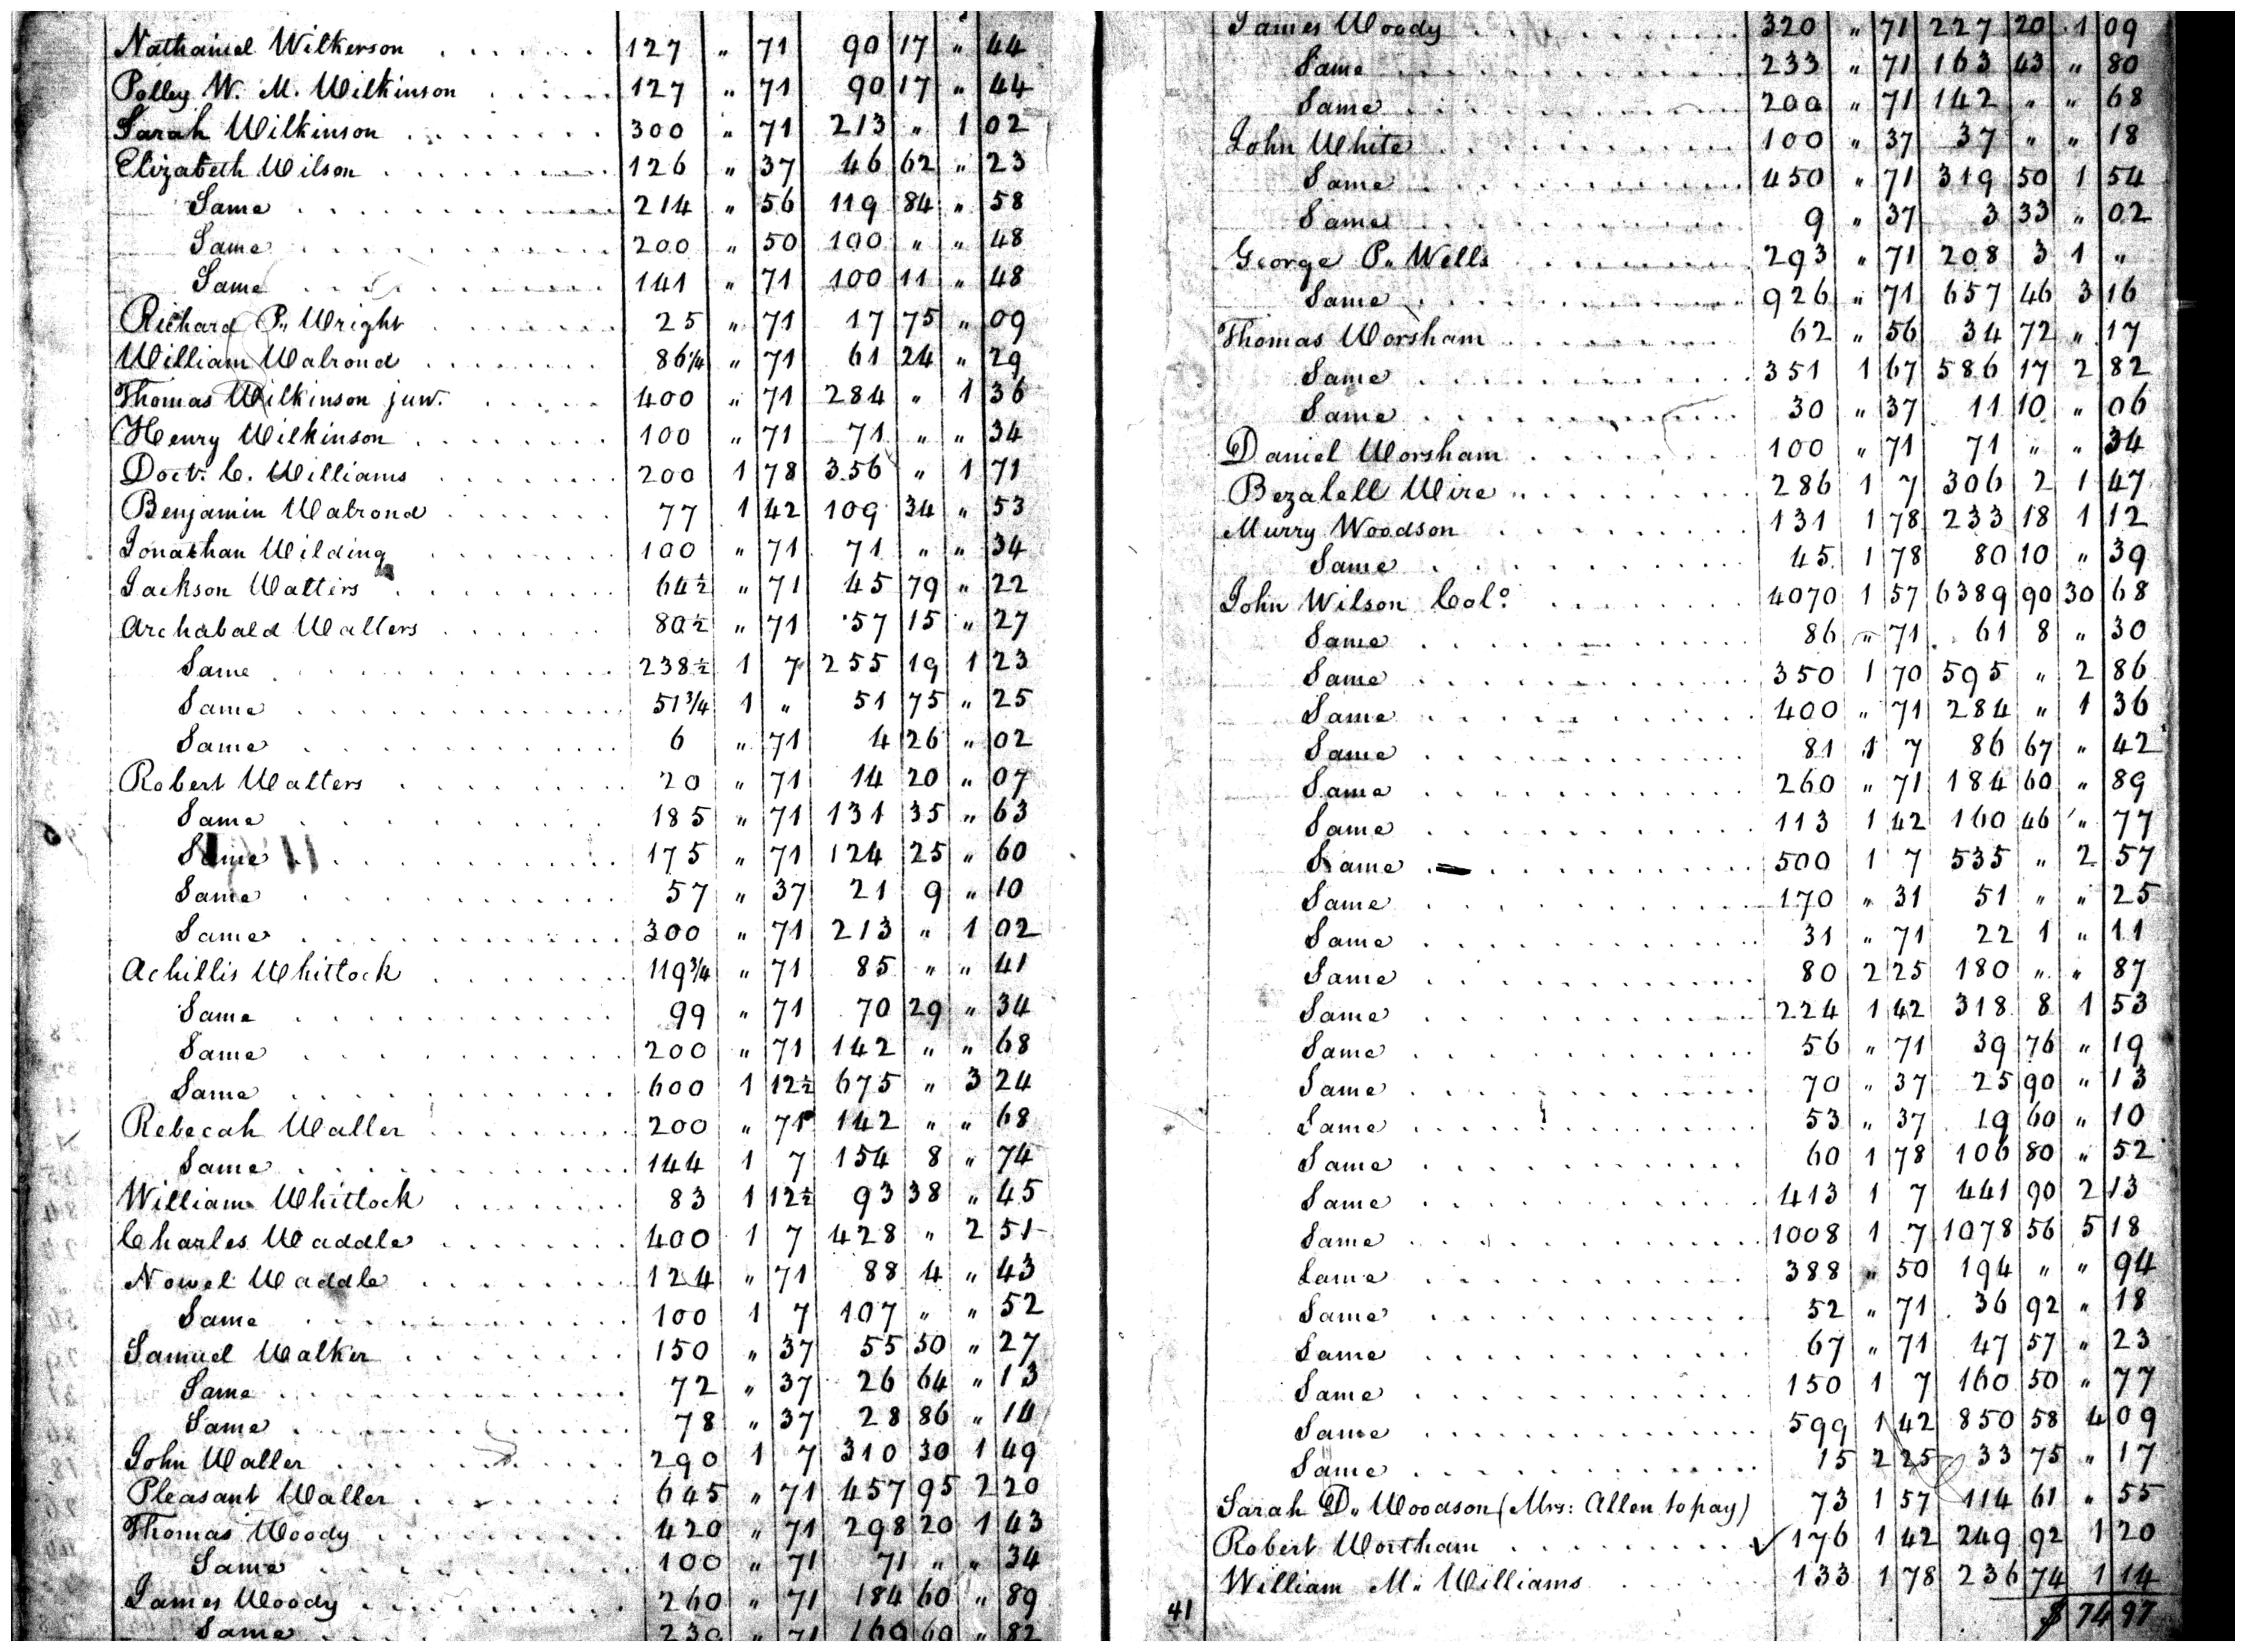 Nathaniel Wilkerson 127 " 71 90 17 " 44
Polley W. M. Wilkinson 127 " 71 90 17 " 44
Sarah Wilkinson 300 " 71 213 " 1 02
Elizabeth Wilson 126 " 37 46 62 " 23
Same 214 " 56 119 84 " 58
Same 200 " 50 100 " " 48
Same 141 " 71 100 11 " 48
Richard P. Wright 25 " 71 17 75 " 09
William Walrond 86 1/4 " 71 61 24 " 29
Thomas Wilkinson junr. 400 " 71 284 " 1 36
Henry Wilkinson 100 " 71 71 " " 34
Doct. C. Williams 200 1 78 356 " 1 71
Benjamin Walrond 77 1 42 109 34 " 53
Jonathan Wilding 100 " 71 71 " " 34
Jackson Walters 64 1/2 " 71 45 79 " 22
Archabald Walters 80 1/2 " 71 57 15 " 27
Same 238 1/2 1 7 255 19 1 23
Same 51 3/4 1 " 51 75 " 25
Same 6 " 71 4 26 " 02
Robert Walters 20 " 71 14 20 " 07
Same 185 " 71 131 35 " 63
Same 175 " 71 124 25 " 60
Same 57 " 37 21 9 " 10
Same 300 " 71 213 " 1 02
Achillis Whitlock 119 3/4 " 71 85 " " 41
Same 99 " 71 70 29 " 34
Same 200 " 71 142 " " 68
Same 600 1 12 1/2 675 " 3 24
Rebecah Waller 200 " 71 142 " " 68
Same 144 1 7 154 8 " 74
William Whitlock 83 1 12 1/2 93 38 " 45
Charles Waddle 400 1 7 428 " 2 51
Nowel Waddle 124 " 71 88 4 " 43
Same 100 1 7 107 " " 52
Samuel Walker 150 " 37 55 50 " 27
Same 72 " 37 26 64 " 13
Same 78 " 37 28 86 " 14
John Waller 290 1 7 310 30 1 49
Pleasant Waller 645 " 71 457 95 2 20
Thomas Woody 420 " 71 298 20 1 43
Same 100 " 71 71 " " 34
James Woody 260 " 71 184 60 " 89
Same 239 " 71 169 69 " 82
James Woody 320 " 71 227 20 1 09
Same 233 " 71 163 43 " 80
Same 200 " 71 142 " " 68
John White 100 " 37 37 " " 18
Same 450 " 71 319 50 1 54
Same 9 " 37 3 33 " 02
George P. Wells 293 " 71 208 3 1 "
Same 926 " 71 657 46 3 16
Thomas Worsham 62 " 56 34 72 " 17
Same 351 1 67 586 17 2 82
Same 30 " 37 11 10 " 06
Daniel Worsham 100 " 71 71 " " 34
Bezalell Wire 286 1 7 306 2 1 47
Murry Woodson 131 1 78 233 18 1 12
Same 45 1 78 80 10 " 39
John Wilson Colo. 4070 1 57 6389 90 30 68
Same 86 " 71 61 8 " 30
Same 350 1 70 595 " 2 86
Same 400 " 71 284 " 1 36
Same 81 1 7 86 67 " 42
Same 260 " 71 184 60 " 89
Same 113 1 42 160 46 " 77
Same 500 1 7 535 " 2 57
Same 170 " 31 51 " " 25
Same 31 " 71 22 1 " 11
Same 80 2 25 180 " " 87
Same 224 1 42 318 8 1 53
Same 56 " 71 39 76 " 19
Same 70 " 37 25 90 " 13
Same 53 " 37 19 60 " 10
Same 60 1 78 106 80 " 52
Same 413 1 7 441 90 2 13
Same 1008 1 7 1078 56 5 18
Same 388 " 50 194 " " 94
Same 52 " 71 36 92 " 18
Same 67 " 71 47 57 " 23
Same 150 1 7 160 50 " 77
Same 599 1 42 850 58 4 09
Same 15 2 25 33 75 " 17
Sarah D. Woodson (Mrs: Allen to pay) 73 1 57 114 61 " 55
Robert Wortham ✓ 176 1 42 249 92 1 20
William M. Williams 133 1 78 236 74 1 14
41 $ 74 97